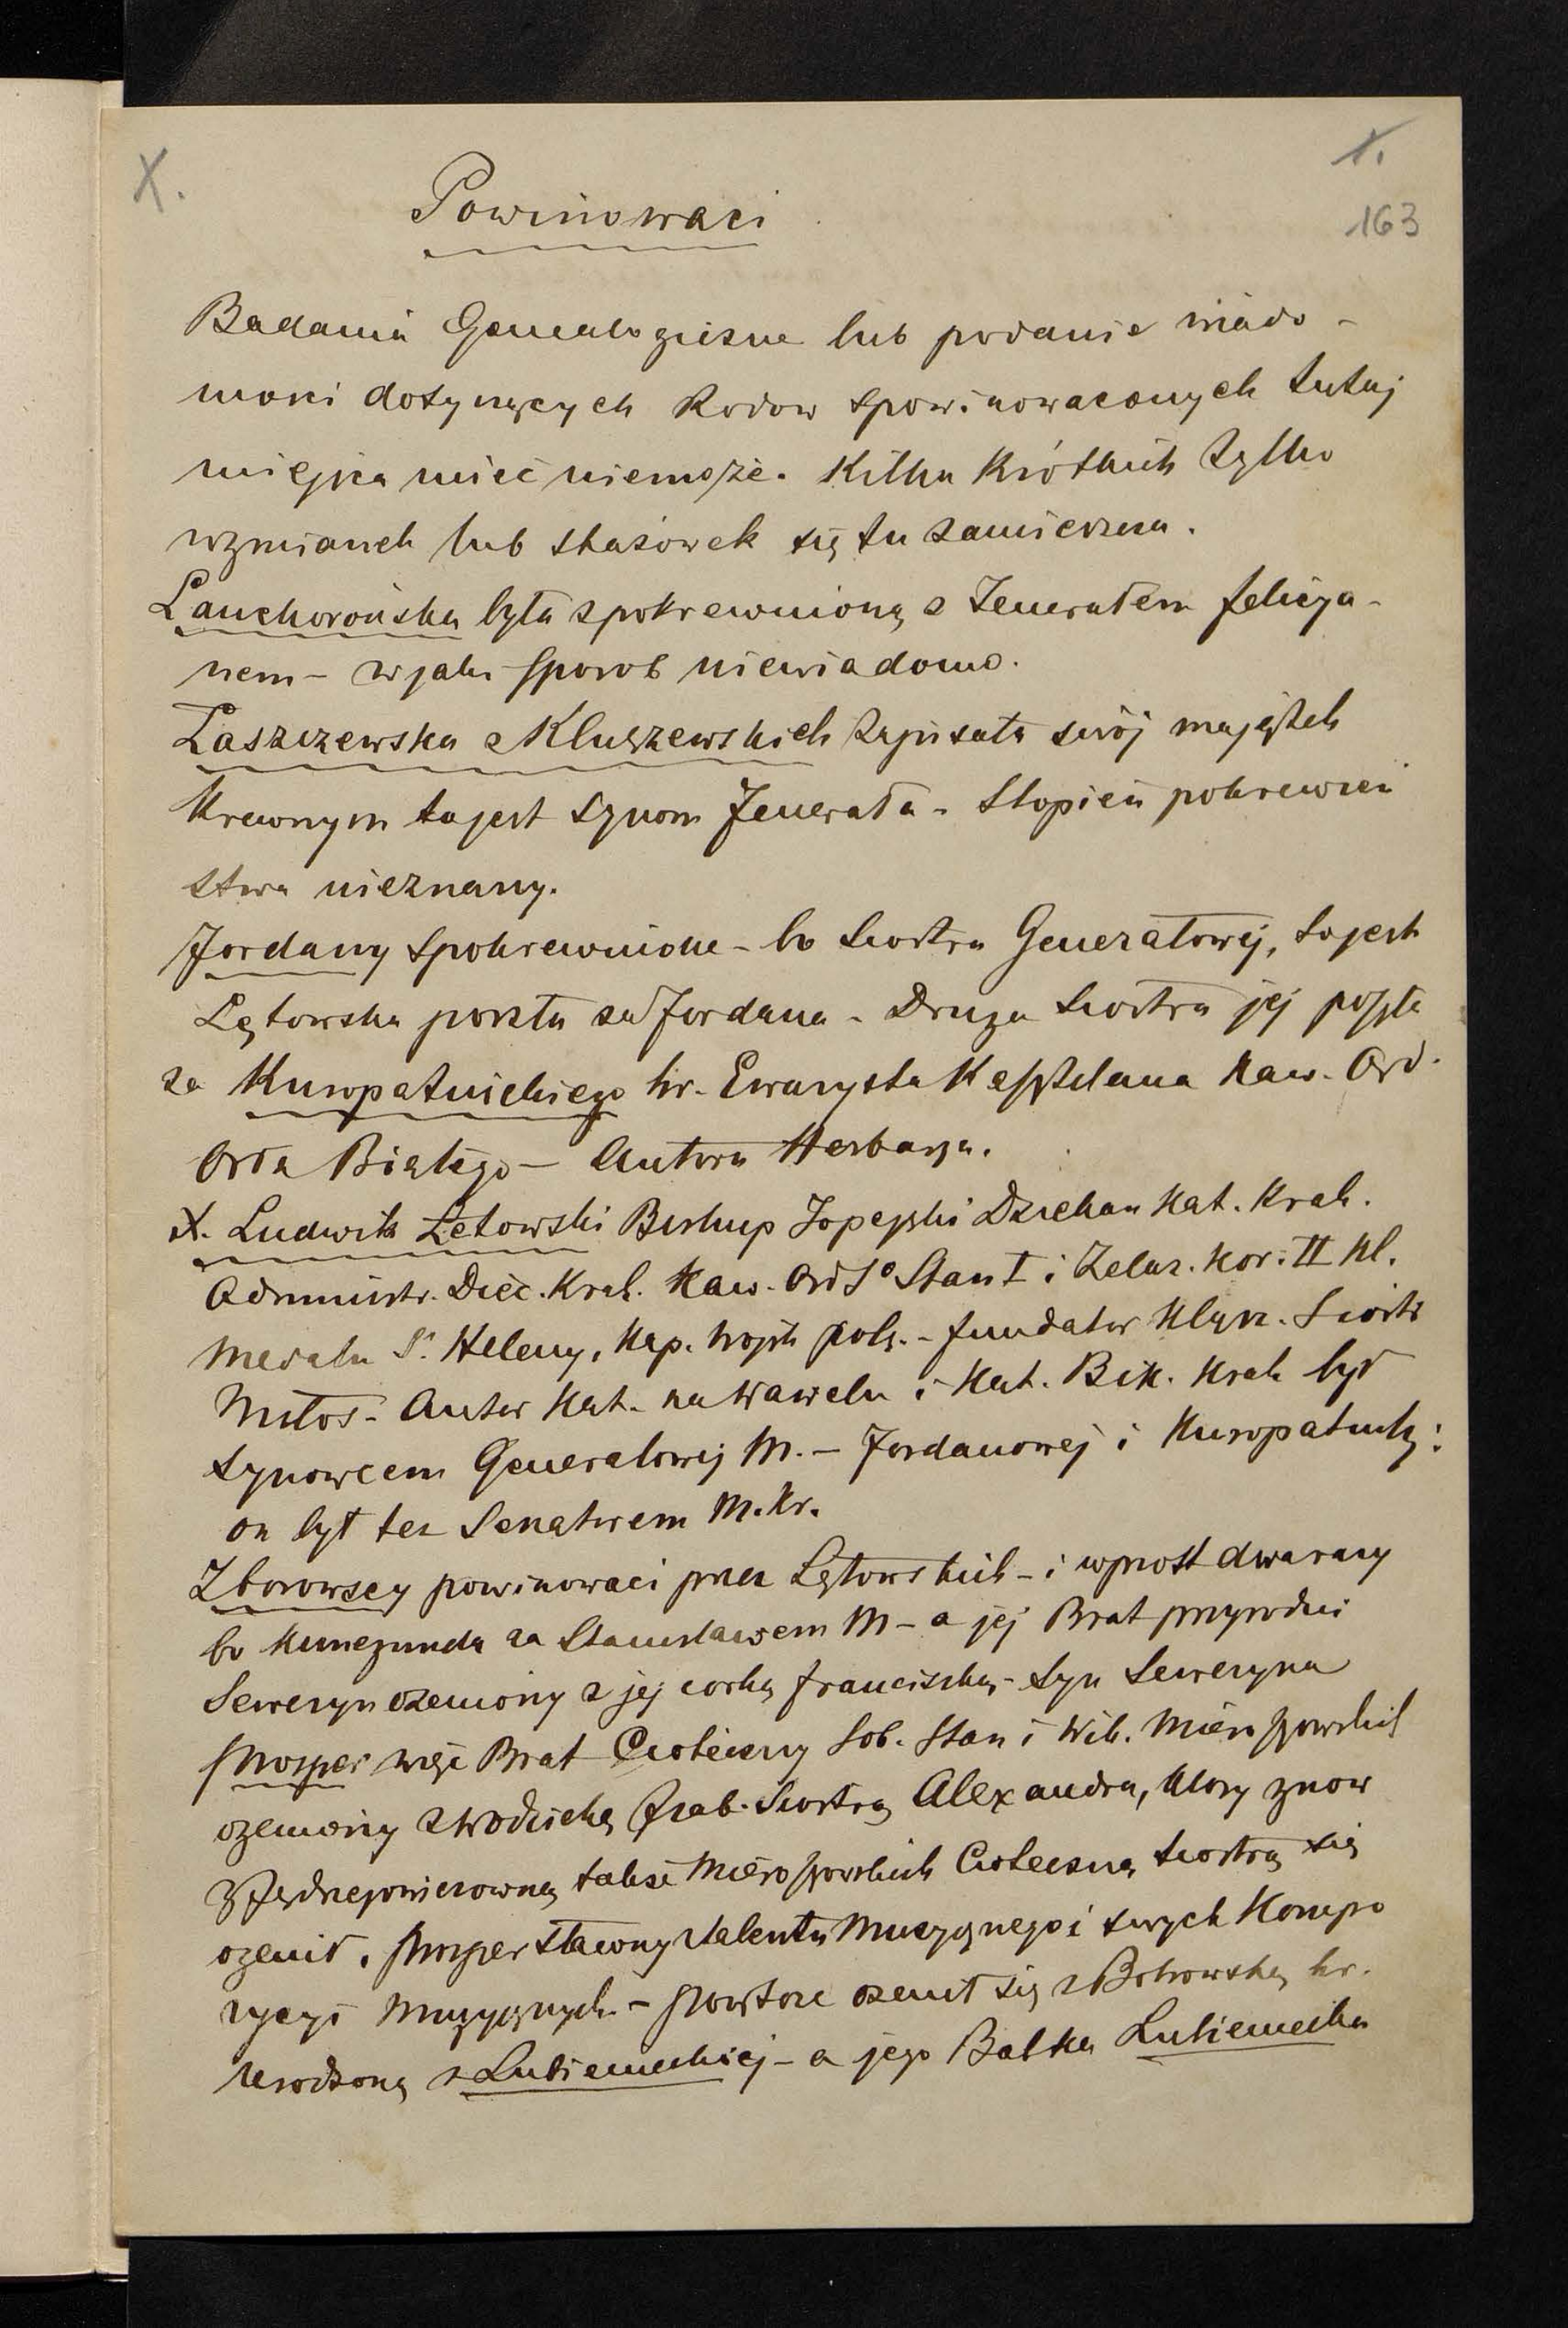 X.
1.
163
Powinowaci
Badania Genealogiczne lub podanie wiado-
mości dotyczących Rodow spowinowaconych tutaj
miejsca mieć niemoże. Kilka Krótkich tylko
wzmianek lub skazówek się tu zamieszcza.
Lanckorońska była spokrewnioną z Jenerałem Felicya-
nem – w jaki sposob niewiadomo.
Łaszczewska z Kluszewskich zapisała swój majątek
Krewnym to jest synom Jenerała – Stopień pokrewień
stwa nieznany.
Jordany spokrewnione – bo siostra Generałowej, to jest
Łętowska poszła za Jordana – Druga siostra jej poszła
za Kuropatnickiego hr. Ewarysta Kasztelana Kaw. Ord.
Orła Białego – Autora Herbarza.
X. Ludwik Łetowski Biskup Jopejski Dziekan Kat. Krak.
Administr. Diec. Krak. Kaw. Ord Sº Stan I i Żelaz. Kor. II Kl.
Medalu S. Heleny, Kap. Wojsk pols. – fundator Klasz. Siostr
Miłos. – Autor Kat. na Wawelu i Kat. Bisk. Krak był
synowcem Generałowej M. – Jordanowej i Kuropatnickiej:
on był też Senatorem M. Kr.
Zborowscy powinowaci przez Łętowskich – i wprost dwa razy
bo Kunegunda za Stanisławem M – a jej Brat przyrodni
Seweryn ożeniony z jej corką Franciszką – syn Seweryna
Prosper więc Brat Cioteczny Sob. Stan i Wik. Mieroszowskich
ożeniony z Wodzicką Hrab. Siostrą Alexandra, ktory znow
z Jędrzejowiczowną także Mieroszowskich Cioteczną siostrą się
ożenił. Prosper sławony talentu Muzycznego i swych Kompo
zycyi Muzycznych. – Powtore ożenił się z Bobrowską hr.
urodzoną z Lubienieckiej – a jego Babka Lubieniecka